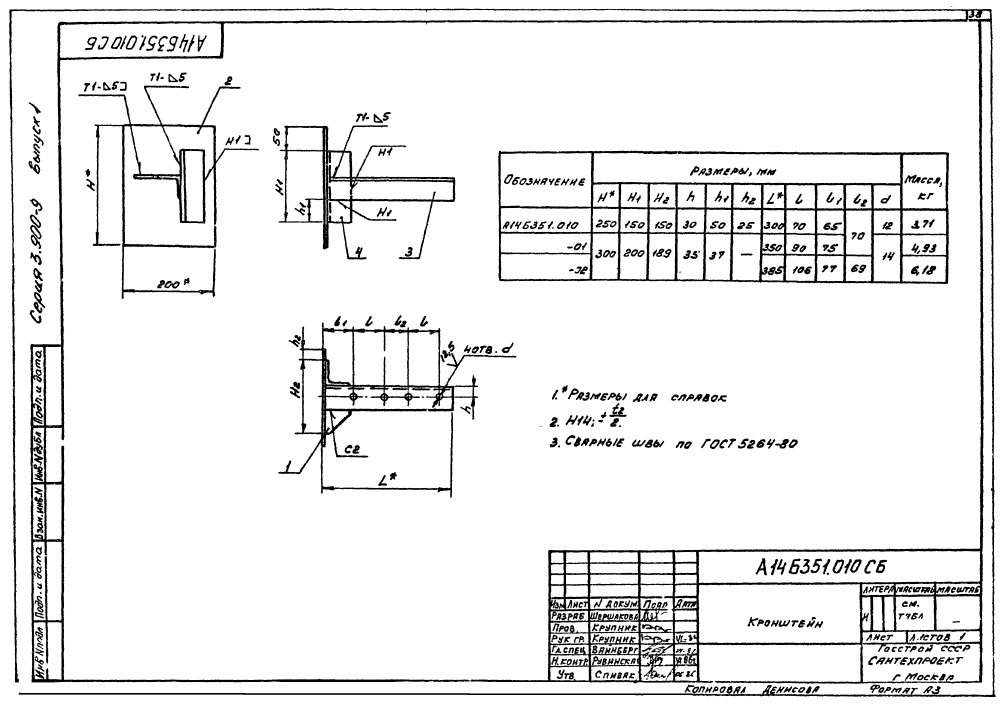 38
А14Б351.010 СБ
Серия 3.900-9 Выпуск 1
Т1-⊿5
Т1-⊿5
2
Н1
H*
200*
50
Т1-⊿5
Н1
H1
h1
Н1
4
3
Обозначение Размеры, мм Масса, кг
H* H1 H2 h h1 h2 L* l l1 l2 d
А14Б351.010 250 150 150 30 50 25 300 70 65 70 12 3,71
-01 300 200 189 35 37 — 350 90 75 14 4,93
-02 385 106 77 69 6,18
l1 l l2 l
h2
H2
12,5
4 отв. d
h
1
С2
L*
1.* Размеры для справок
2. H14; ± t2/2.
3. Сварные швы по ГОСТ 5264-80
Подп. и дата
Инв.N дубл
Взам. инв.N
Подп. и дата
Инв.N подл
А14Б351.010 СБ
Изм Лист N докум. Подп Дата
Разраб Шершакова
Пров. Крупник
Рук гр. Крупник
Гл.спец Вайнберг
Н.контр Рувинская
Утв. Спивак
Кронштейн
Литера Масштаб
И см. табл —
Лист Листов 1
Госстрой СССР
Сантехпроект
г Москва
Копировал Денисова Формат А3